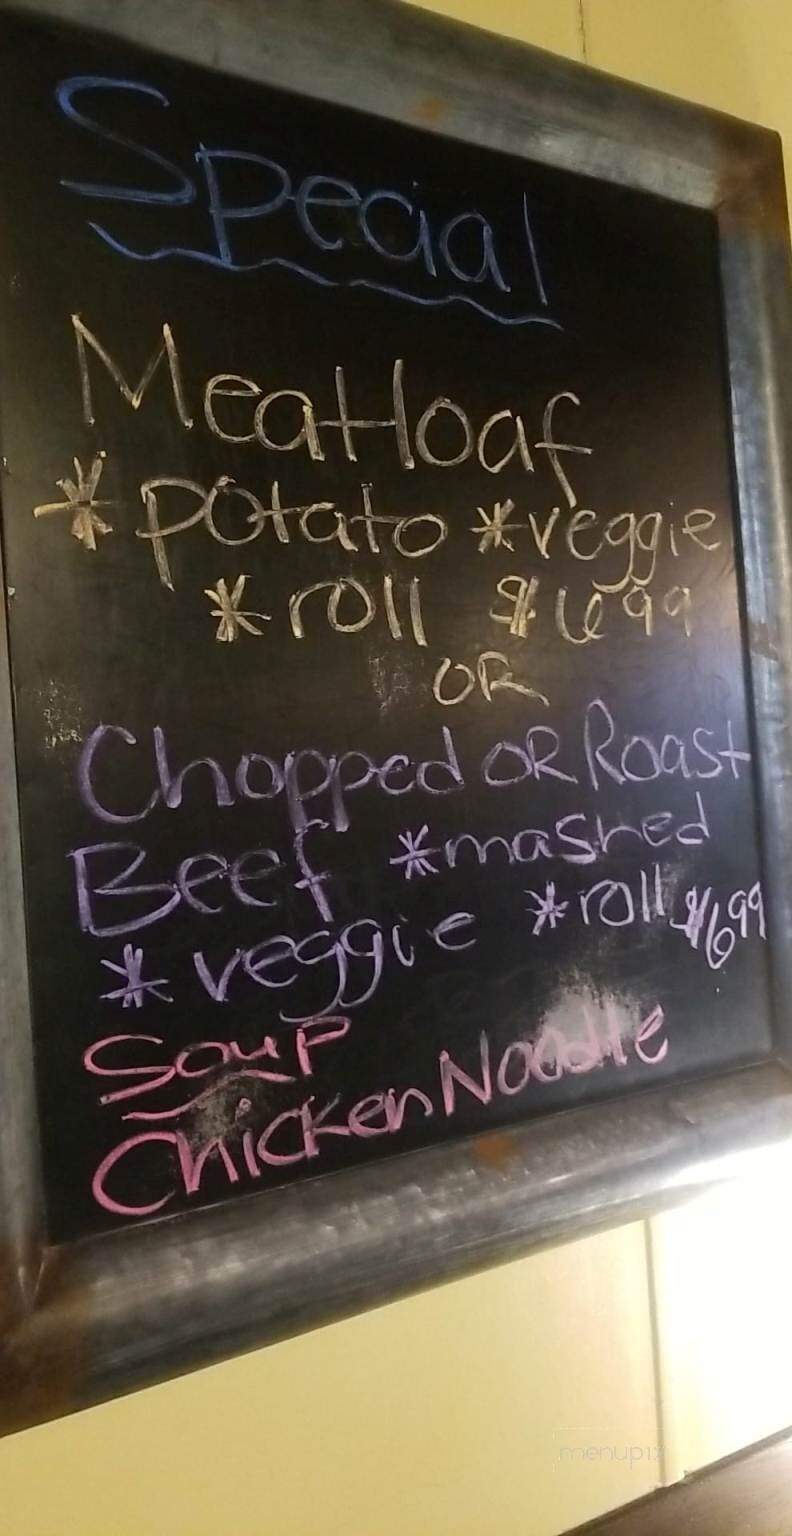 Special
Meatloaf
*potato *veggie
*roll $6 99
OR
Chopped OR Roast
Beef *mashed
*veggie *roll $6 99
Soup
Chicken Noodle
menupix